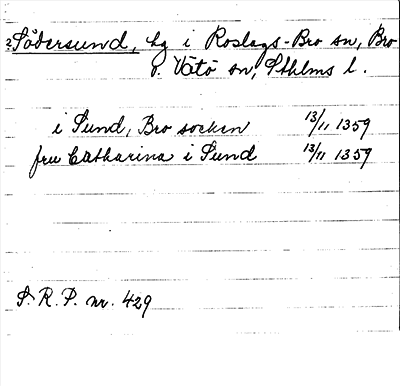 ?Södersund, hg i Roslags-Bro sn, Bro
o. Vätö sn, Sthlms l.
i Sund, Bro socken 13/11 1359
fru Catharina i Sund 13/11 1359
S.R.P. nr. 429